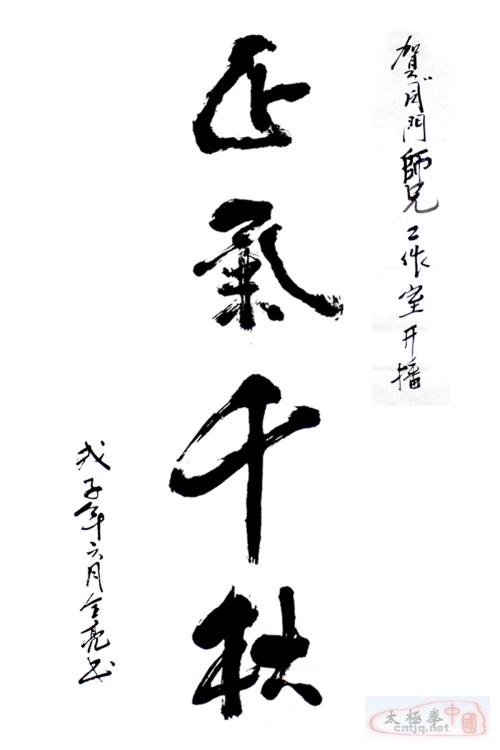 賀門師兄工作室开播
正氣千秋
戊子年六月全亮书
太極拳中國
cntjq.net